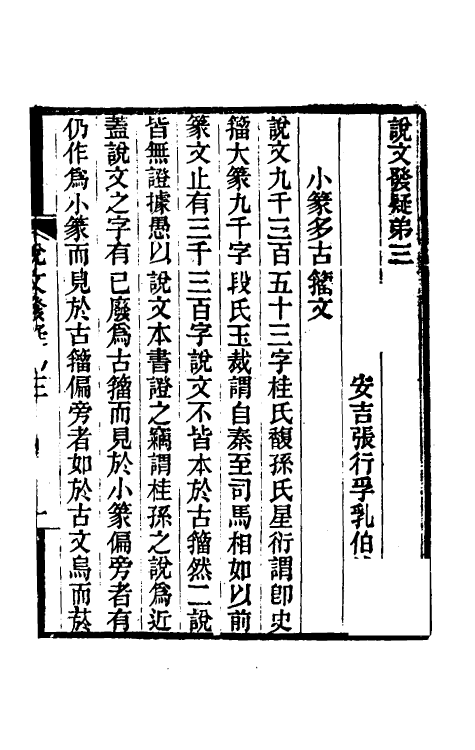 說文發疑弟三
安吉張行孚乳伯
小篆多古籒文
說文九千三百五十三字桂氏馥孫氏星衍謂卽史
籒大篆九千字段氏玉裁謂自秦至司馬相如以前
篆文止有三千三百字說文不皆本於古籒然二說
皆無證據愚以說文本書證之竊謂桂孫之說爲近
蓋說文之字有已廢爲古籒而見於小篆偏旁者有
仍作爲小篆而見於古籒偏旁者如於古文烏而菸
說文發疑 三 一